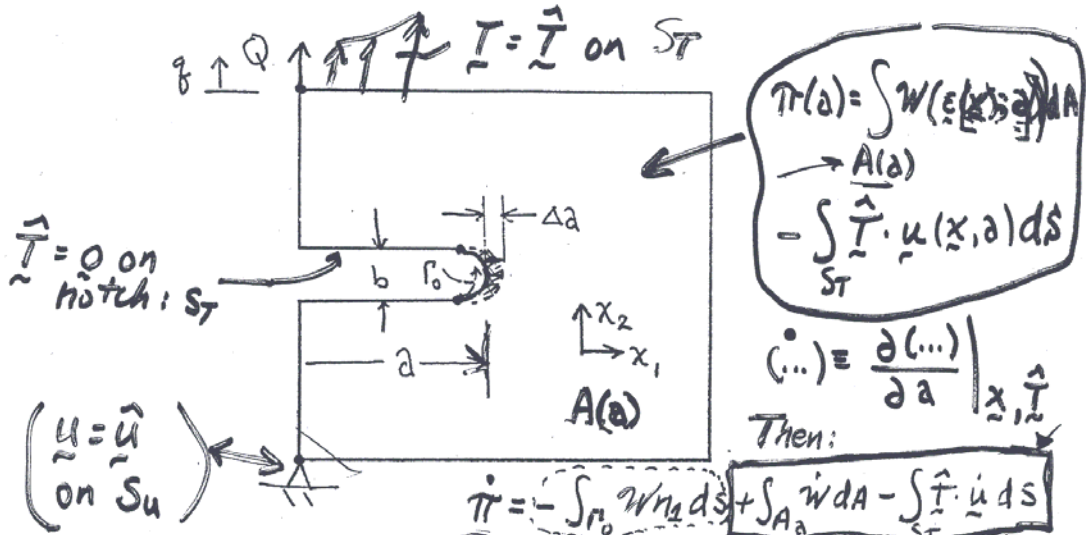 q Q T = T̂ on S_T
π(a) = ∫ W(ε[x; a]) dA
A(a)
- ∫ T̂ · u(x, a) dS
S_T
Δa
T̂ = 0 on
notch: S_T
b Γ₀
x₂
x₁
a
A(a)
(...)˙ ≡ ∂(...)/∂a |x, T̂
Then:
(u = û
on Sᵤ)
π̇ = - ∫_Γ₀ W n₁ ds + ∫_A_a Ẇ dA - ∫_S_T T̂ · u̇ dS